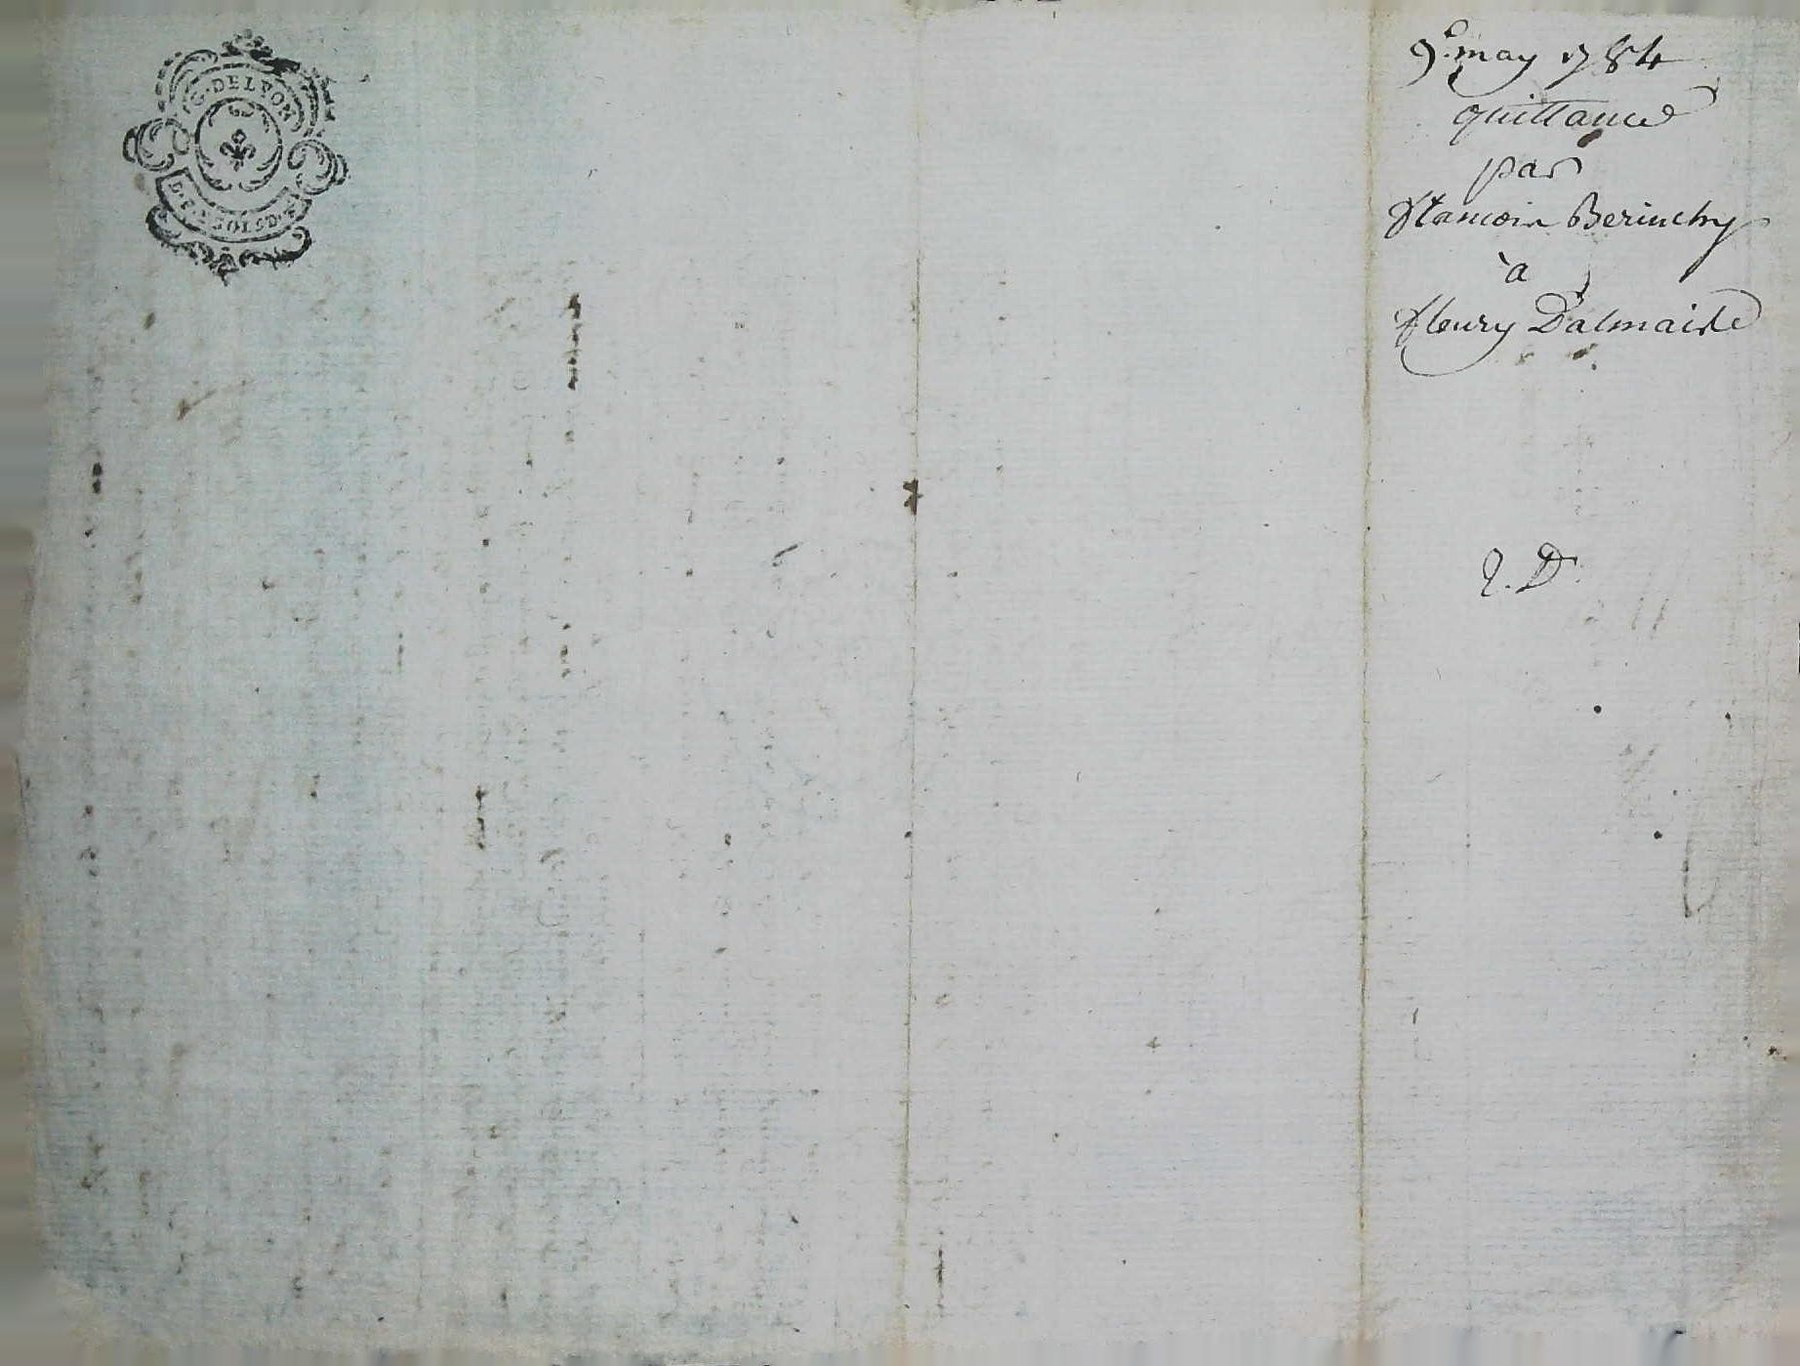 G. DE LYON
9e. may 1784
quittance
par
francois Berinchy
à
fleury Dalmaise
2. D